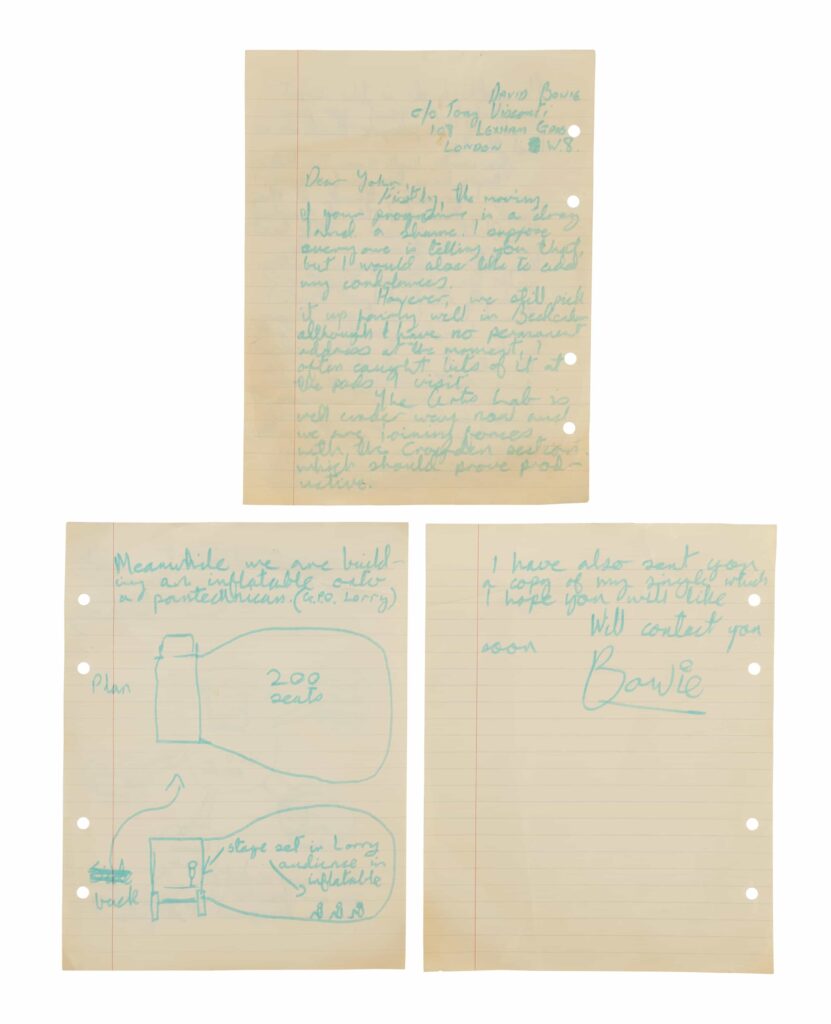 David Bowie
c/o Tony Visconti
108 Lexham Gdns
London W.8.
Dear John,
Firstly, the moving
of your programme is a drag
and a shame. I suppose
everyone is telling you that,
but I would also like to add
my condolences.
However, we still pick
it up fairly well in Beckenham
although I have no permanent
address at the moment, I
often caught bits of it at
the pads I visit.
The Arts Lab is
well under way now and
we are joining forces
with the Croydon section
which should prove prod-
uctive.
Meanwhile we are build-
ing an inflatable onto
a pantechnican. (G.P.O. Lorry)
Plan
200
seats
stage set in Lorry
audience in
inflatable
back
I have also sent you
a copy of my single which
I hope you will like
Will contact you
soon
Bowie